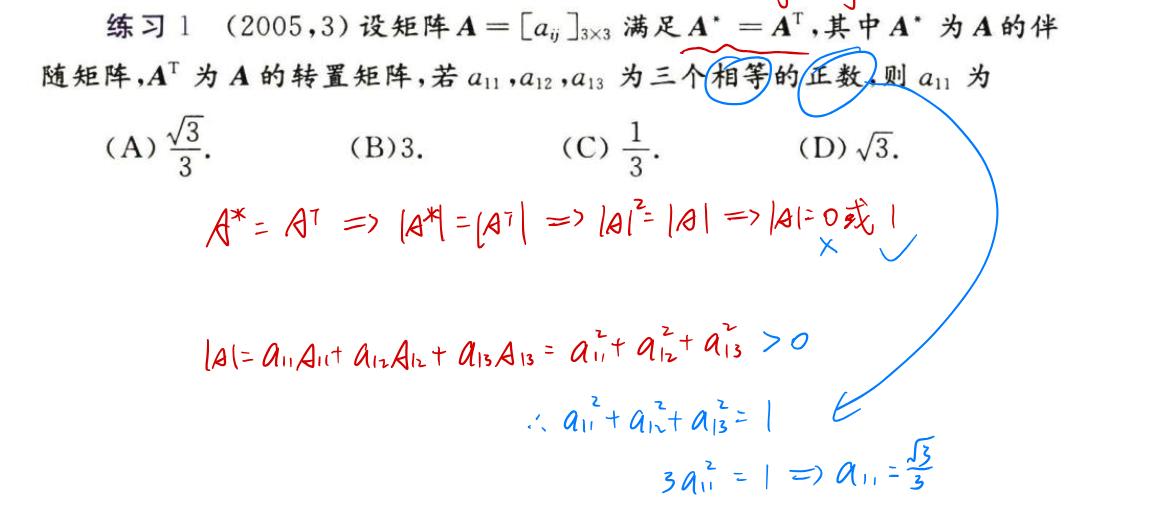 练习1 (2005,3)设矩阵 A = [a_{ij}]_{3×3} 满足 A* = A^T,其中 A* 为 A 的伴
随矩阵,A^T 为 A 的转置矩阵,若 a₁₁,a₁₂,a₁₃ 为三个相等的正数,则 a₁₁ 为
(A) √3/3. (B)3. (C) 1/3. (D)√3.
A* = A^T ⇒ |A*| = |A^T| ⇒ |A|² = |A| ⇒ |A| = 0或 1
× ✓
|A| = a₁₁A₁₁ + a₁₂A₁₂ + a₁₃A₁₃ = a₁₁² + a₁₂² + a₁₃² > 0
∴ a₁₁² + a₁₂² + a₁₃² = 1
3a₁₁² = 1 ⇒ a₁₁ = √3/3